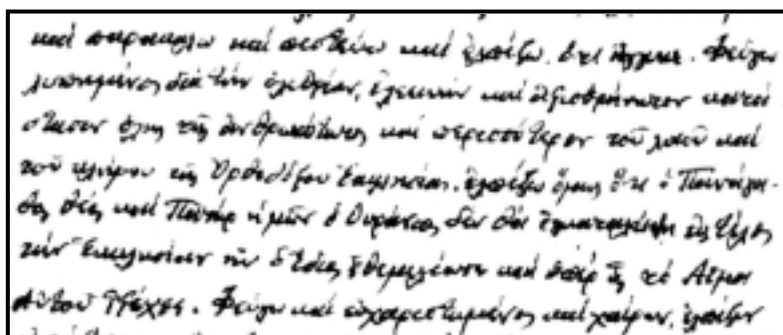 καί παρακαλῶ καί πιστεύω καί ἐλπίζω, ὅτι Φεύγω
λυπημένος διά τήν ἐλεεινήν καί ἀξιοθρήνητον κατά
στασιν ὅλης τῆς ἀνθρωπότητος καί περισσότερον τοῦ λαοῦ καί
τοῦ κλήρου τῆς Ὀρθοδόξου Ἐκκλησίας. ἐλπίζω ὅμως ὅτι ὁ Πανάγα-
θος Θεός καί Πατήρ ἡμῶν ὁ Οὐράνιος δέν θά ἐγκαταλείψῃ εἰς τέλος
τήν Ἐκκλησίαν ἥν ὁ ἴδιος ἐθεμελίωσε καί ὑπέρ ἧς τό Αἷμα
Αὐτοῦ ἔχυσε. Φεύγω καί εὐχαριστημένος καί χαίρων, ἐλπίζων